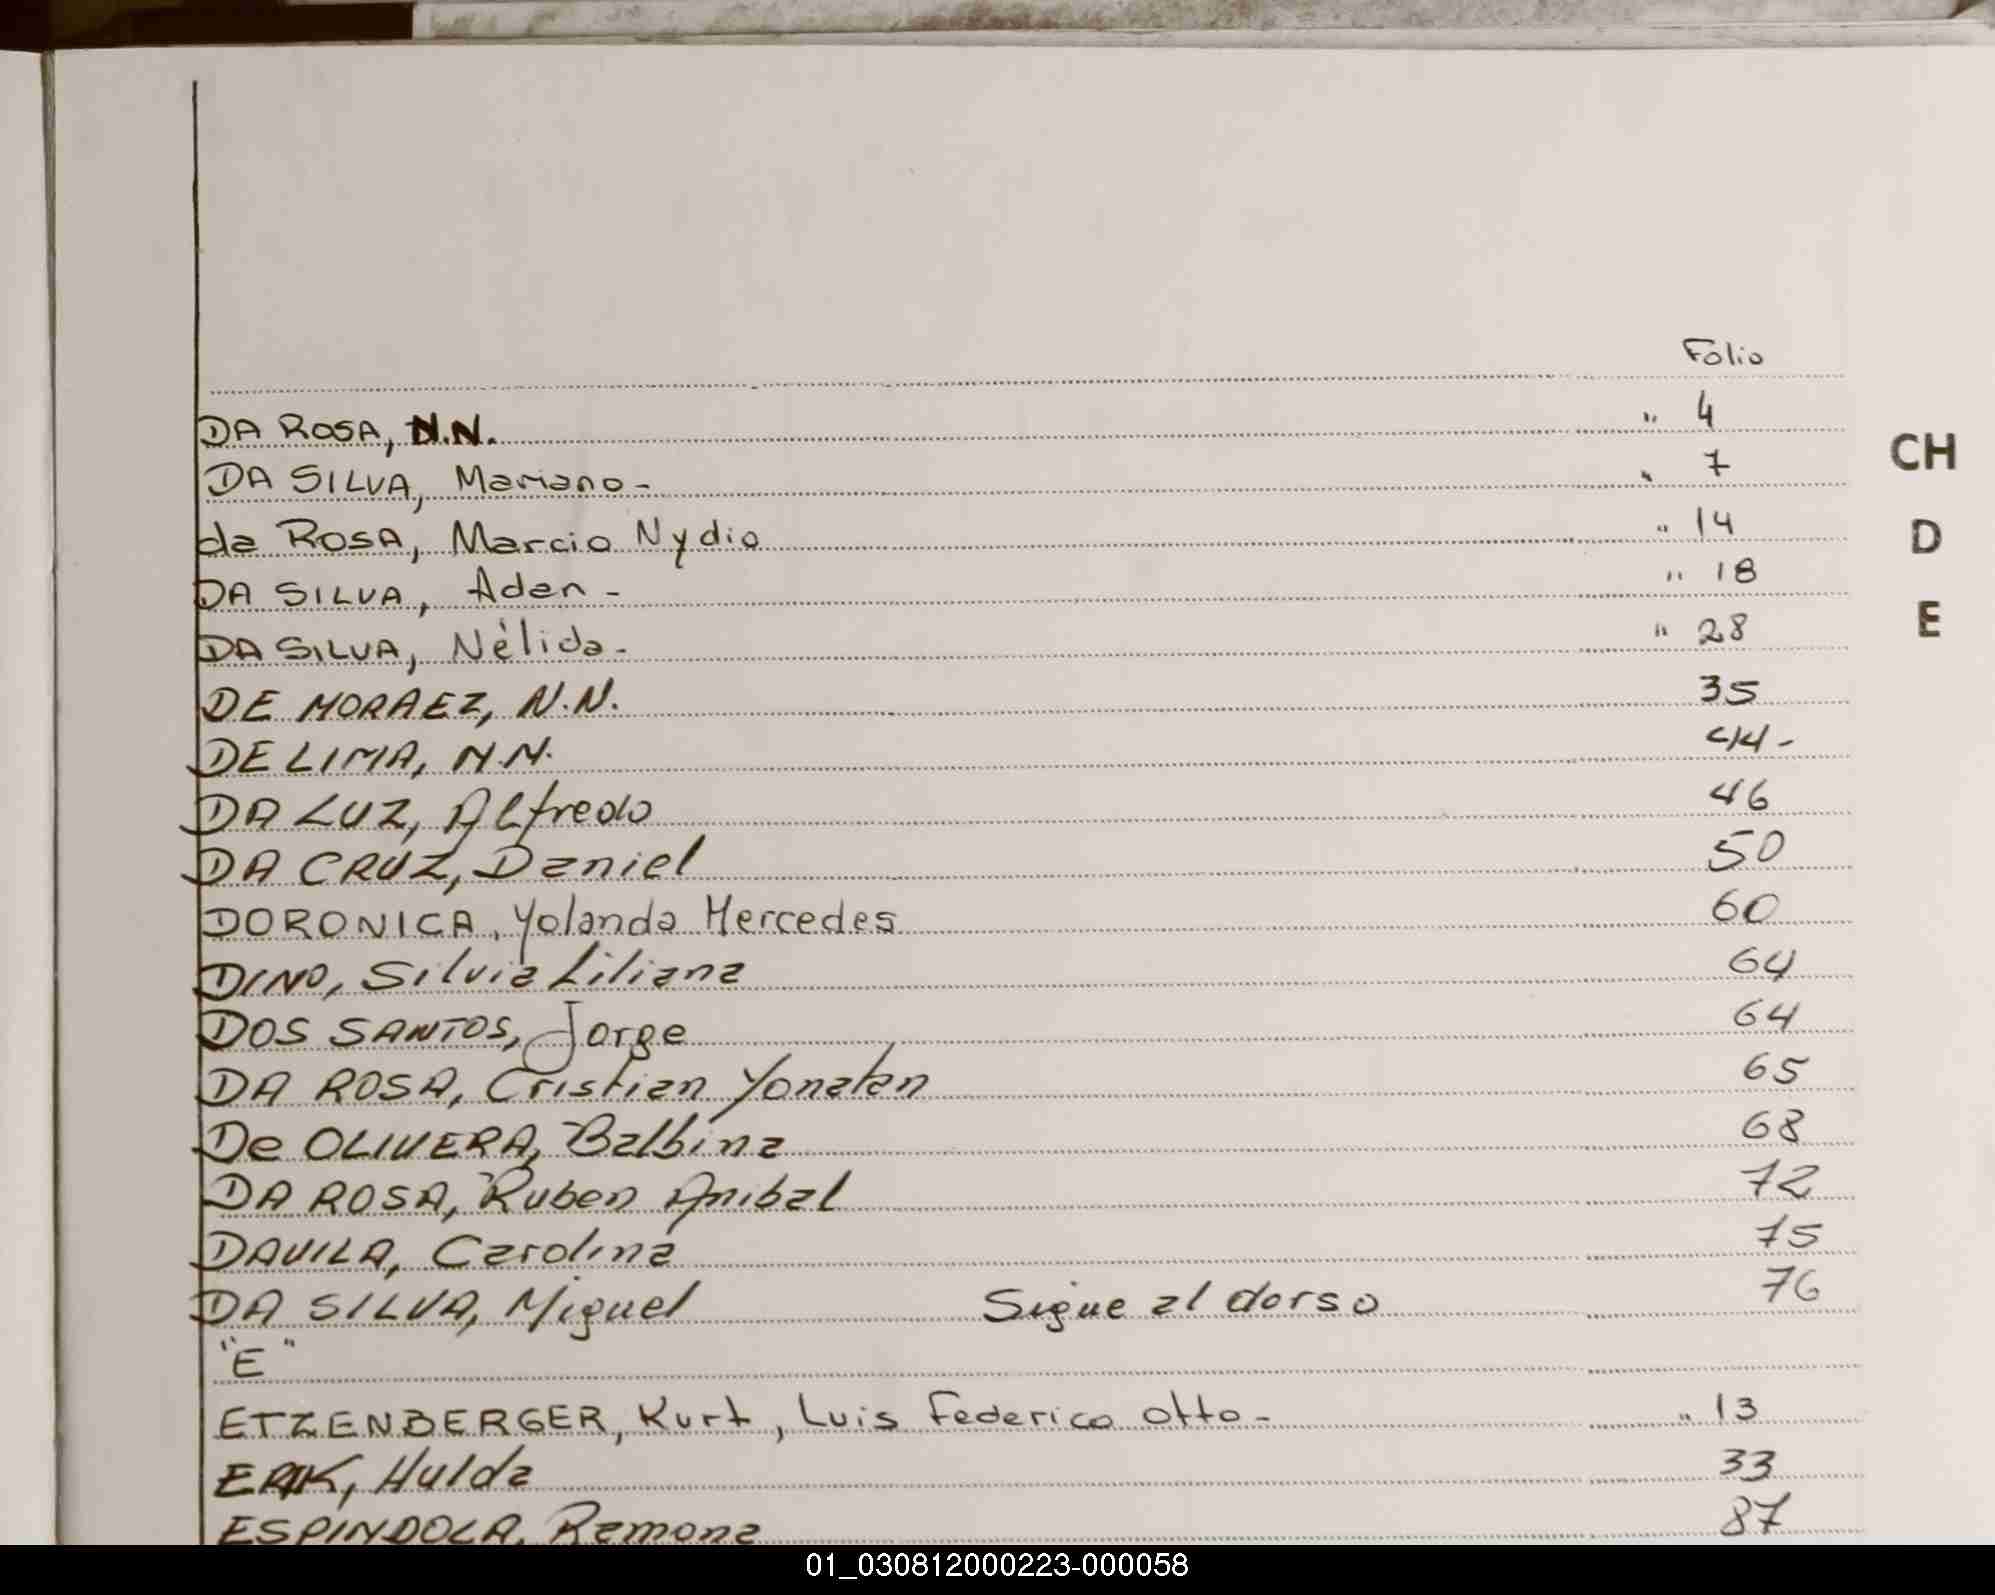 Folio
DA ROSA, N.N. " 4
DA SILVA, Mariano- " 7
da ROSA, Marcio Nydio " 14
DA SILVA, Adan - " 18
DA SILVA, Nélida- " 28
DE MORAEZ, N.N. 35
DE LIMA, N.N. 44-
DA LUZ, Alfredo 46
DA CRUZ, Daniel 50
DORONICA, Yolanda Mercedes 60
DINO, Silvia Liliana 64
DOS SANTOS, Jorge 64
DA ROSA, Cristian Yonatan 65
De OLIVERA, Balbina 68
DA ROSA, Ruben Anibal 72
DAVILA, Carolina 75
DA SILVA, Miguel Sigue al dorso 76
"E"
ETZENBERGER, Kurt, Luis Federico Otto- " 13
Hulda 33
ESPINDOLA, Ramona 87
CH
D
E
01_030812000223-000058